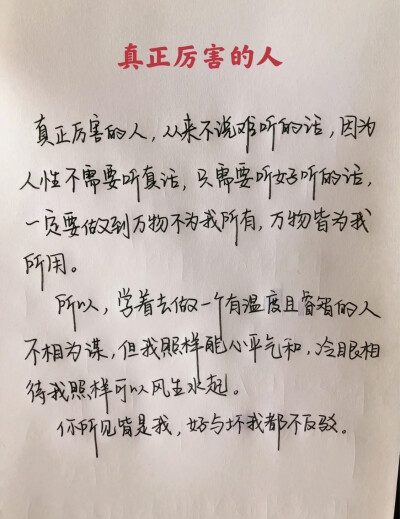 真正厉害的人
真正厉害的人，从来不说难听的话，因为
人性不需要听真话，只需要听好听的话，
一定要做到万物不为我所有，万物皆为我
所用。
所以，学着去做一个有温度且睿智的人
不相为谋，但我照样能心平气和，冷眼相
待我照样可以风生水起。
你所见皆是我，好与坏我都不反驳。